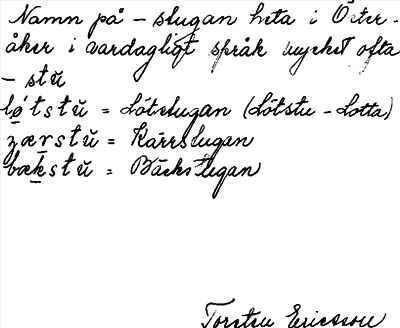 Namn på – stugan heta i Öster-
åker i vardagligt språk mycket ofta
– stŭ
lø̱tstŭ = Lötstugan (Lötstu – Lotta)
zærstŭ = Kärrstugan
bækstŭ = Bäckstugan
Torsten Ericsson